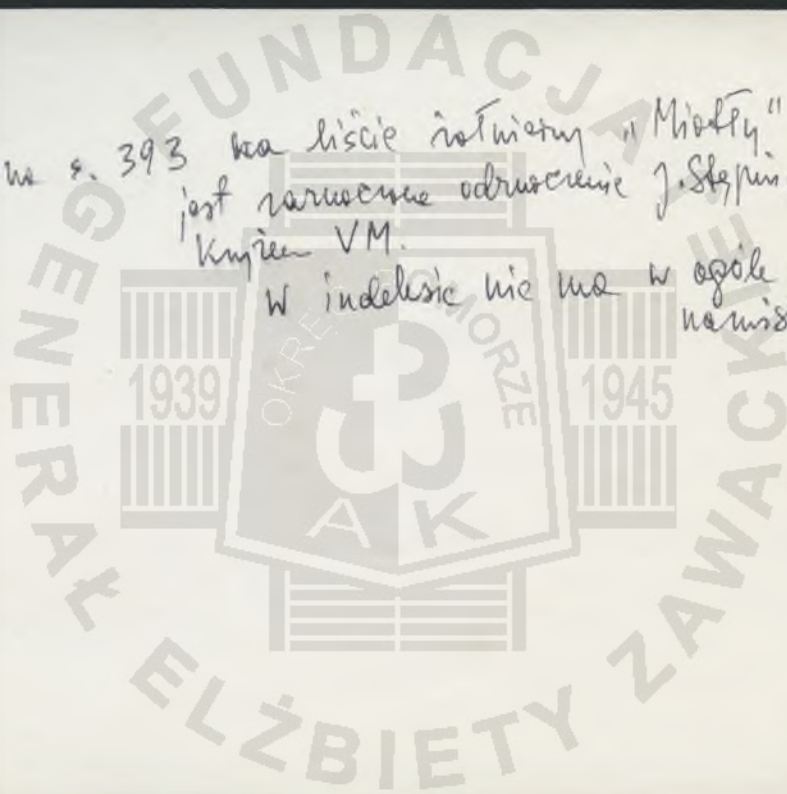 na s. 393 na liście żołnierzy „Miotły"
jest zaznaczone odznaczenie J. Stępin
Krzyżem VM.
W indeksie nie ma w ogóle
nazwis
FUNDACJA
GENERAŁ ELŻBIETY ZAWACKIEJ
OKRĘG POMORZE
1939
1945
AK